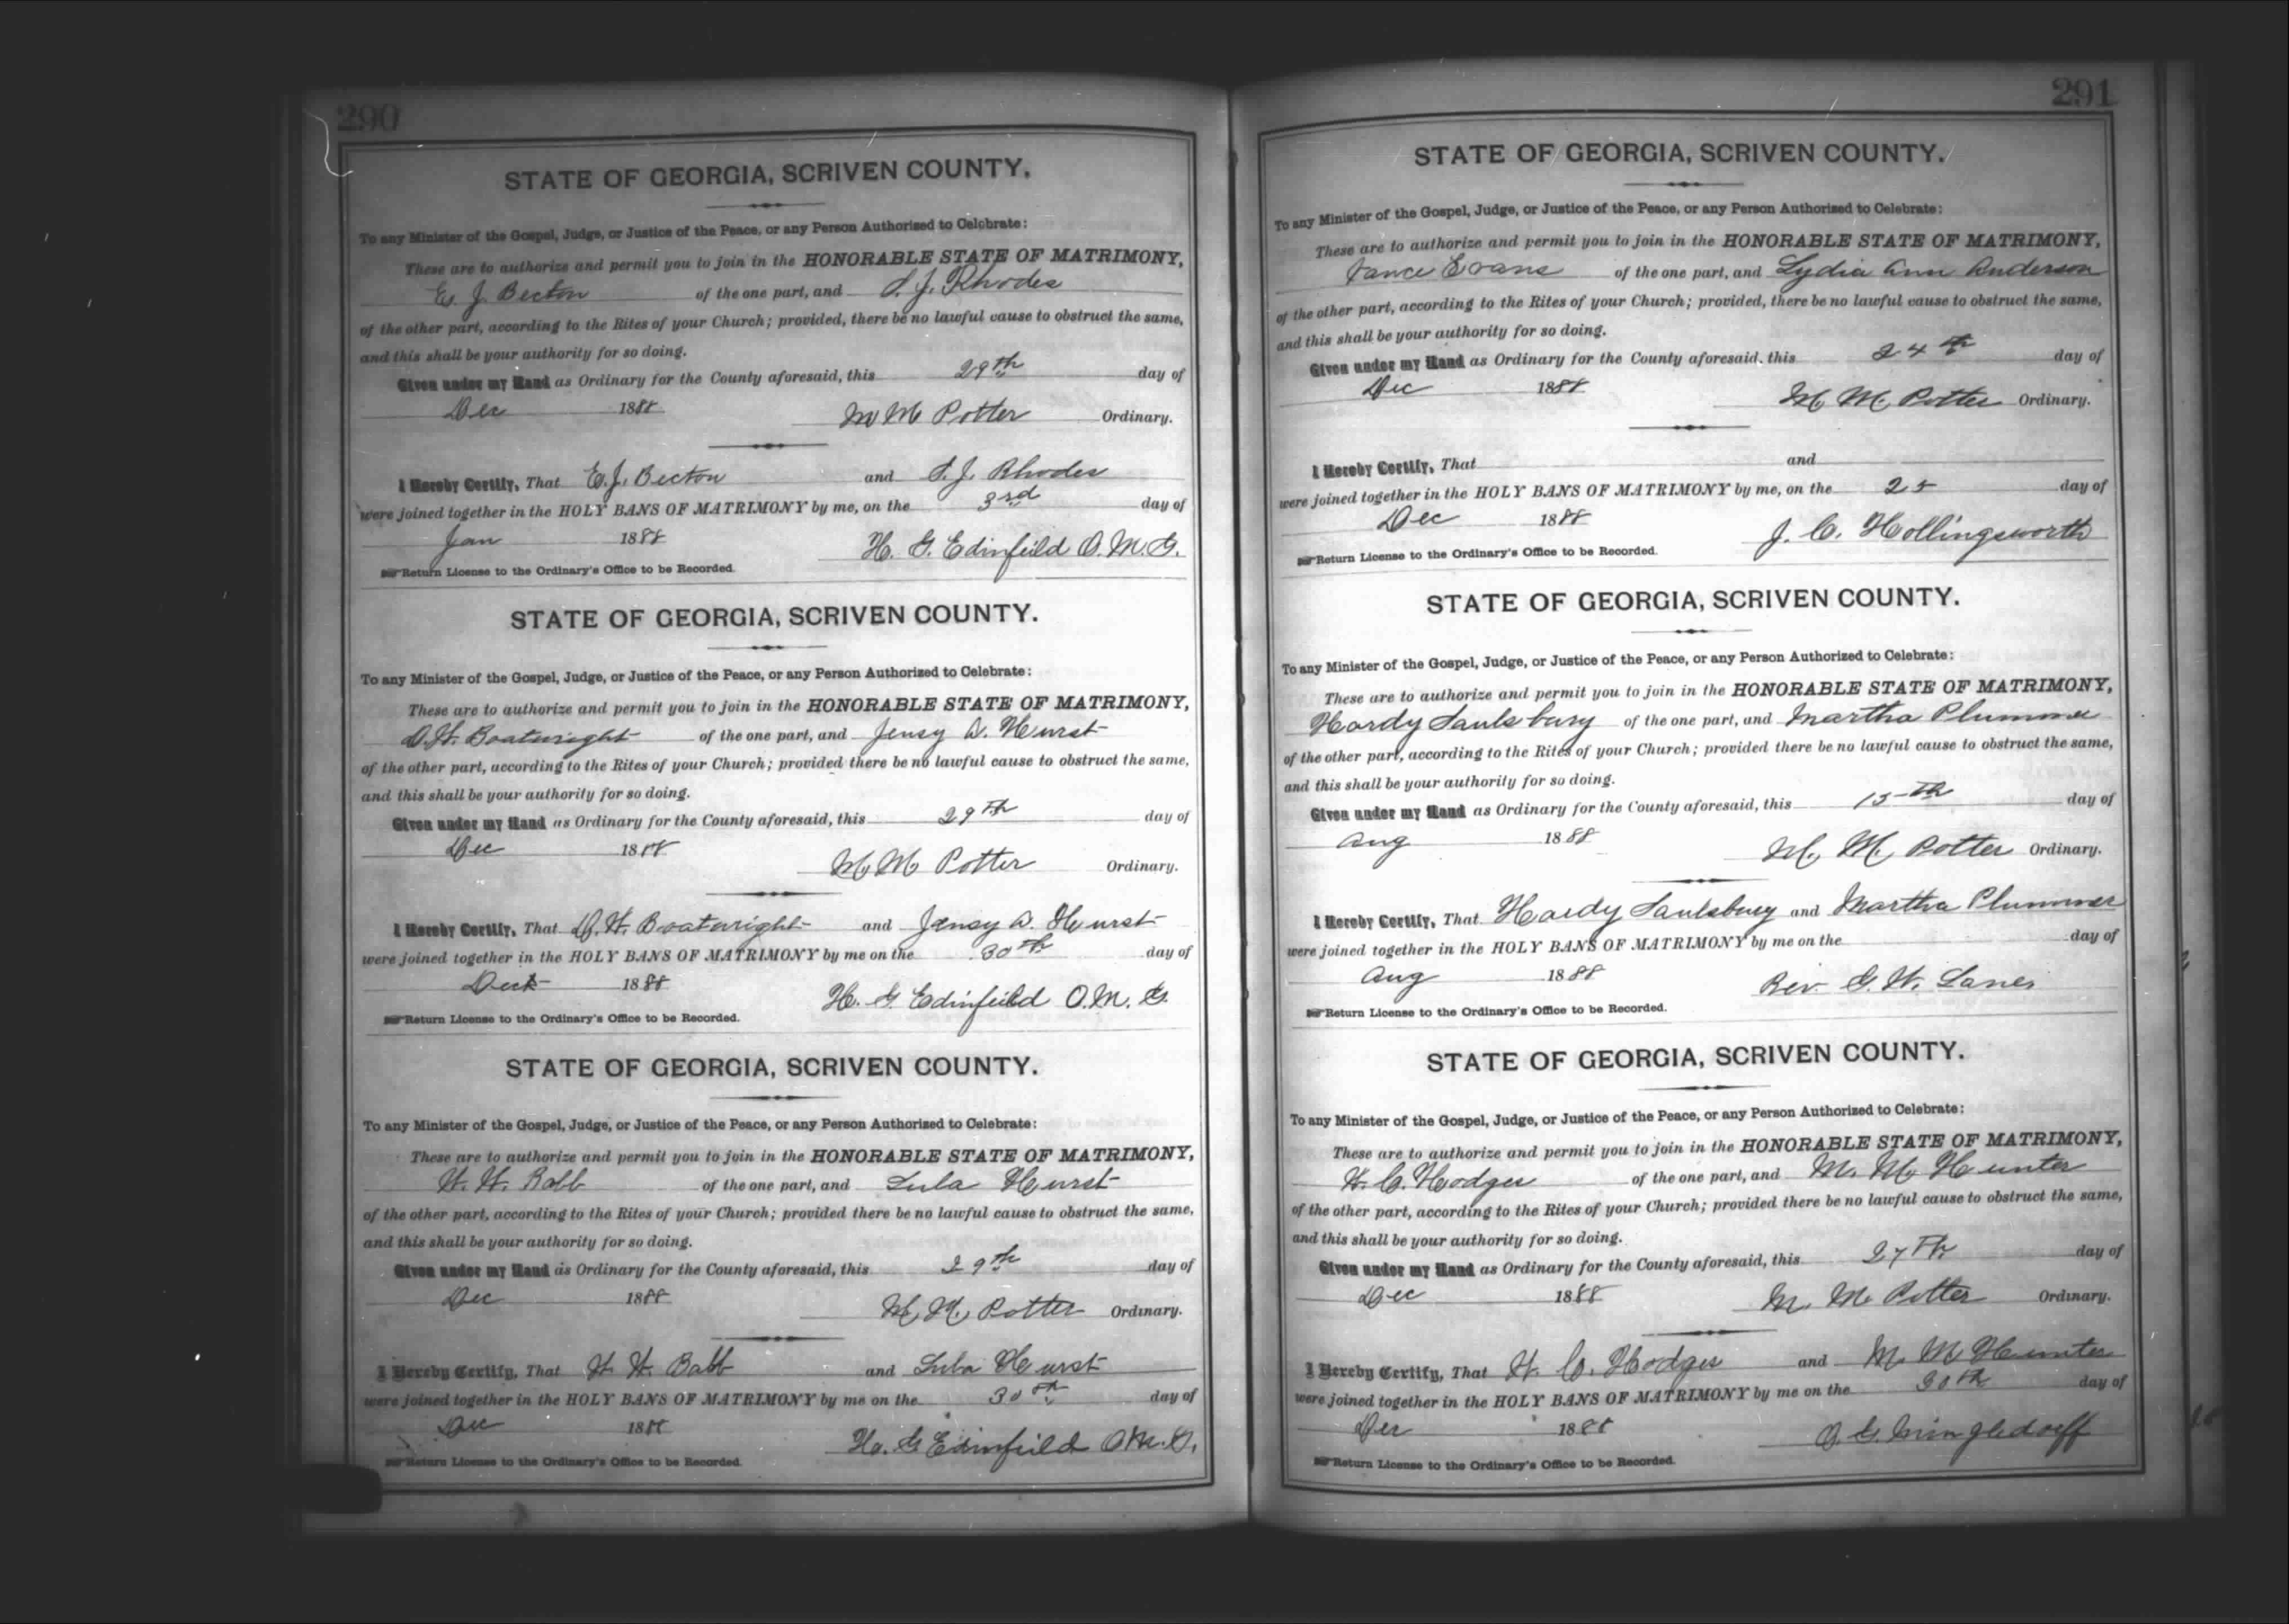 290
STATE OF GEORGIA, SCRIVEN COUNTY.
To any Minister of the Gospel, Judge, or Justice of the Peace, or any Person Authorized to Celebrate:
These are to authorize and permit you to join in the HONORABLE STATE OF MATRIMONY,
E. J. Becton of the one part, and S. J. Rhodes
of the other part, according to the Rites of your Church; provided, there be no lawful cause to obstruct the same,
and this shall be your authority for so doing.
Given under my Hand as Ordinary for the County aforesaid, this 29th day of
Dec 1888 M M Potter Ordinary.
I Hereby Certify, That E. J. Becton and S. J. Rhodes
were joined together in the HOLY BANS OF MATRIMONY by me, on the 3rd day of
Jan 1888 H. G. Edinfield O. M. G.
Return License to the Ordinary's Office to be Recorded.
STATE OF GEORGIA, SCRIVEN COUNTY.
To any Minister of the Gospel, Judge, or Justice of the Peace, or any Person Authorized to Celebrate:
These are to authorize and permit you to join in the HONORABLE STATE OF MATRIMONY,
D. H. Boatwright of the one part, and Jensy D. Hurst
of the other part, according to the Rites of your Church; provided there be no lawful cause to obstruct the same,
and this shall be your authority for so doing.
Given under my Hand as Ordinary for the County aforesaid, this 29th day of
Dec 1888 M M Potter Ordinary.
I Hereby Certify, That D. H. Boatwright and Jensy D. Hurst
were joined together in the HOLY BANS OF MATRIMONY by me on the 30th day of
1888 H. G Edinfield O. M. G.
Return License to the Ordinary's Office to be Recorded.
STATE OF GEORGIA, SCRIVEN COUNTY.
To any Minister of the Gospel, Judge, or Justice of the Peace, or any Person Authorized to Celebrate:
These are to authorize and permit you to join in the HONORABLE STATE OF MATRIMONY,
H. H. Babb of the one part, and Lula Hurst
of the other part, according to the Rites of your Church; provided there be no lawful cause to obstruct the same,
and this shall be your authority for so doing.
Given under my Hand as Ordinary for the County aforesaid, this 29th day of
Dec 1888 M. M. Potter Ordinary.
I Hereby Certify, That H H. Babb and Lula Hurst
were joined together in the HOLY BANS OF MATRIMONY by me on the 30th day of
Dec 1888 H. G Edinfield O M. G.
Return License to the Ordinary's Office to be Recorded.
291
STATE OF GEORGIA, SCRIVEN COUNTY.
To any Minister of the Gospel, Judge, or Justice of the Peace, or any Person Authorized to Celebrate:
These are to authorize and permit you to join in the HONORABLE STATE OF MATRIMONY,
Vance Evans of the one part, and Lydia Ann Anderson
of the other part, according to the Rites of your Church; provided, there be no lawful cause to obstruct the same,
and this shall be your authority for so doing.
Given under my Hand as Ordinary for the County aforesaid, this 24th day of
Dec 1888 M. M. Potter Ordinary.
I Hereby Certify, That and
were joined together in the HOLY BANS OF MATRIMONY by me, on the 25 day of
Dec 1888 J. C. Hollingsworth
Return License to the Ordinary's Office to be Recorded.
STATE OF GEORGIA, SCRIVEN COUNTY.
To any Minister of the Gospel, Judge, or Justice of the Peace, or any Person Authorized to Celebrate:
These are to authorize and permit you to join in the HONORABLE STATE OF MATRIMONY,
Hardy Saulsbury of the one part, and Martha Plummer
of the other part, according to the Rites of your Church; provided there be no lawful cause to obstruct the same,
and this shall be your authority for so doing.
Given under my Hand as Ordinary for the County aforesaid, this 15th day of
Aug 1888 M. M. Potter Ordinary.
I Hereby Certify, That Hardy Saulsbury and Martha Plummer
were joined together in the HOLY BANS OF MATRIMONY by me on the day of
Aug 1888 Rev. G. W. Lanes
Return License to the Ordinary's Office to be Recorded.
STATE OF GEORGIA, SCRIVEN COUNTY.
To any Minister of the Gospel, Judge, or Justice of the Peace, or any Person Authorized to Celebrate:
These are to authorize and permit you to join in the HONORABLE STATE OF MATRIMONY,
H. C. Hodges of the one part, and M. M. Hunter
of the other part, according to the Rites of your Church; provided there be no lawful cause to obstruct the same,
and this shall be your authority for so doing.
Given under my Hand as Ordinary for the County aforesaid, this 27th day of
Dec 1888 M. M. Potter Ordinary.
I Hereby Certify, That H. C. Hodges and M. M Hunter
were joined together in the HOLY BANS OF MATRIMONY by me on the 30th day of
Dec 1888
Return License to the Ordinary's Office to be Recorded.